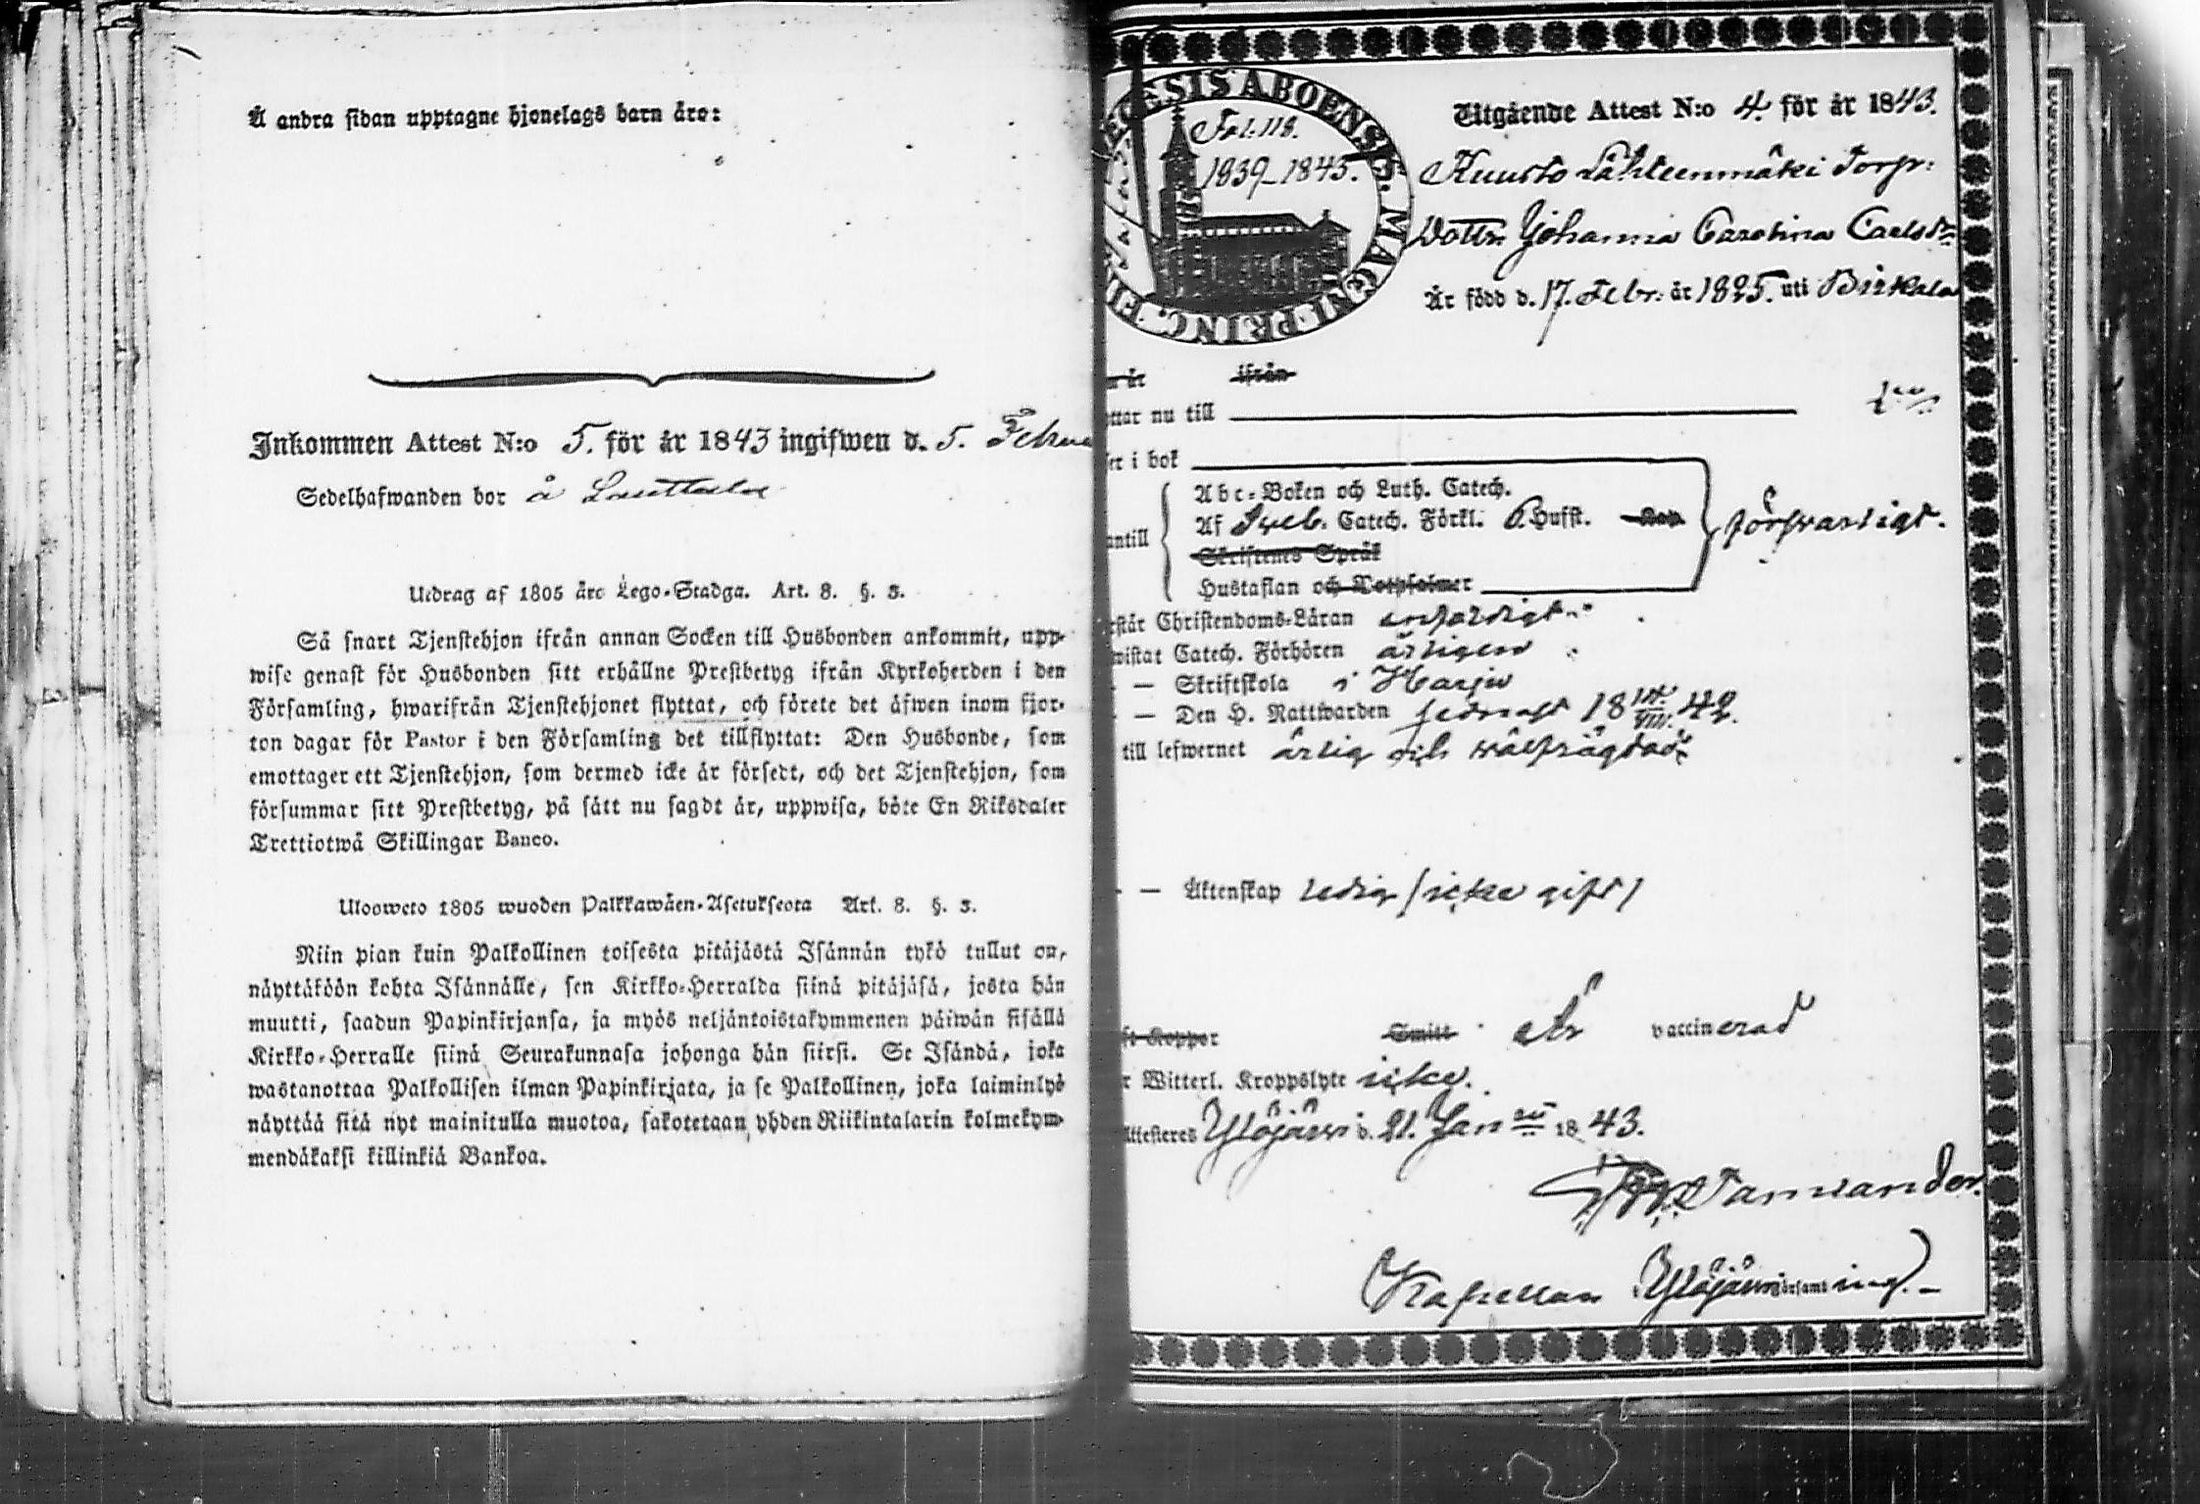 Å andra sidan upptagne hjonelags barn äro:
Inkommen Attest N:o 5. för år 1843 ingifwen d. 5. Febru
Sedelhafwanden bor å
Utdrag af 1805 års Lego-Stadga. Art. 8. §. 3.
Så snart Tjenstehjon ifrån annan Socken till Husbonden ankommit, upp-
wise genast för Husbonden sitt erhållne Prestbetyg ifrån Kyrkoherden i den
Församling, hwarifrån Tjenstehjonet flyttat, och förete det äfwen inom fjor-
ton dagar för Pastor i den Församling det tillflyttat: Den Husbonde, som
emottager ett Tjenstehjon, som dermed icke är försedt, och det Tjenstehjon, som
försummar sitt Prestbetyg, på sätt nu sagdt är, uppwisa, böte En Riksdaler
Trettiotwå Skillingar Banco.
Ulosweto 1805 wuoden Palkkawäen-Asetuksesta Art. 8. §. 3.
Niin pian kuin Palkollinen toisesta pitäjästä Isännän tykö tullut on,
näyttäköön kohta Isännälle, sen Kirkko-Herralda siinä pitäjäsä, josta hän
muutti, saadun Papinkirjansa, ja myös neljäntoistakymmenen päiwän sisällä
Kirkko-Herralle siinä Seurakunnasa johonga hän siirsi. Se Isändä, joka
wastanottaa Palkollisen ilman Papinkirjata, ja se Palkollinen, joka laiminlyö
näyttää sitä nyt mainitulla muotoa, sakotetaan yhden Riikintalarin kolmekym-
mendäkaksi killinkiä Bankoa.
ECESIS ABOENSIS. MAGNI PRINC. FI
Fol. 118.
1839-1843.
Utgående Attest N:o 4. för år 1843.
Kuusto Lähteenmäki Torp:
Dottr. Johanna Carolina Carlsdr
Är född d. 17. Febr: år 1825. uti Birkala
år ifrån
ttar nu till
ser i bok
antill
Abc-Boken och Luth. Catech.
Af Sveb. Catech. Förkl. Husst.
Skriftenes Språk
Hustaflan och
försvarligt.
rstår Christendoms-Läran enfaldigt
wistat Catech. Förhören årligen
- — Skriftskola i Harju
- — Den H. Nattwarden sednast 18 42.
till lefwernet ärlig och wälfrägdad
- — Äktenskap ledig / icke gift /
Koppor Smitt Är vaccinerad
r Witterl. Kroppslyte icke.
Attesteres Ylöjärwi d. 21. Jan 1843.
Tamlander.
Kapellan i Ylöjärwi församling.